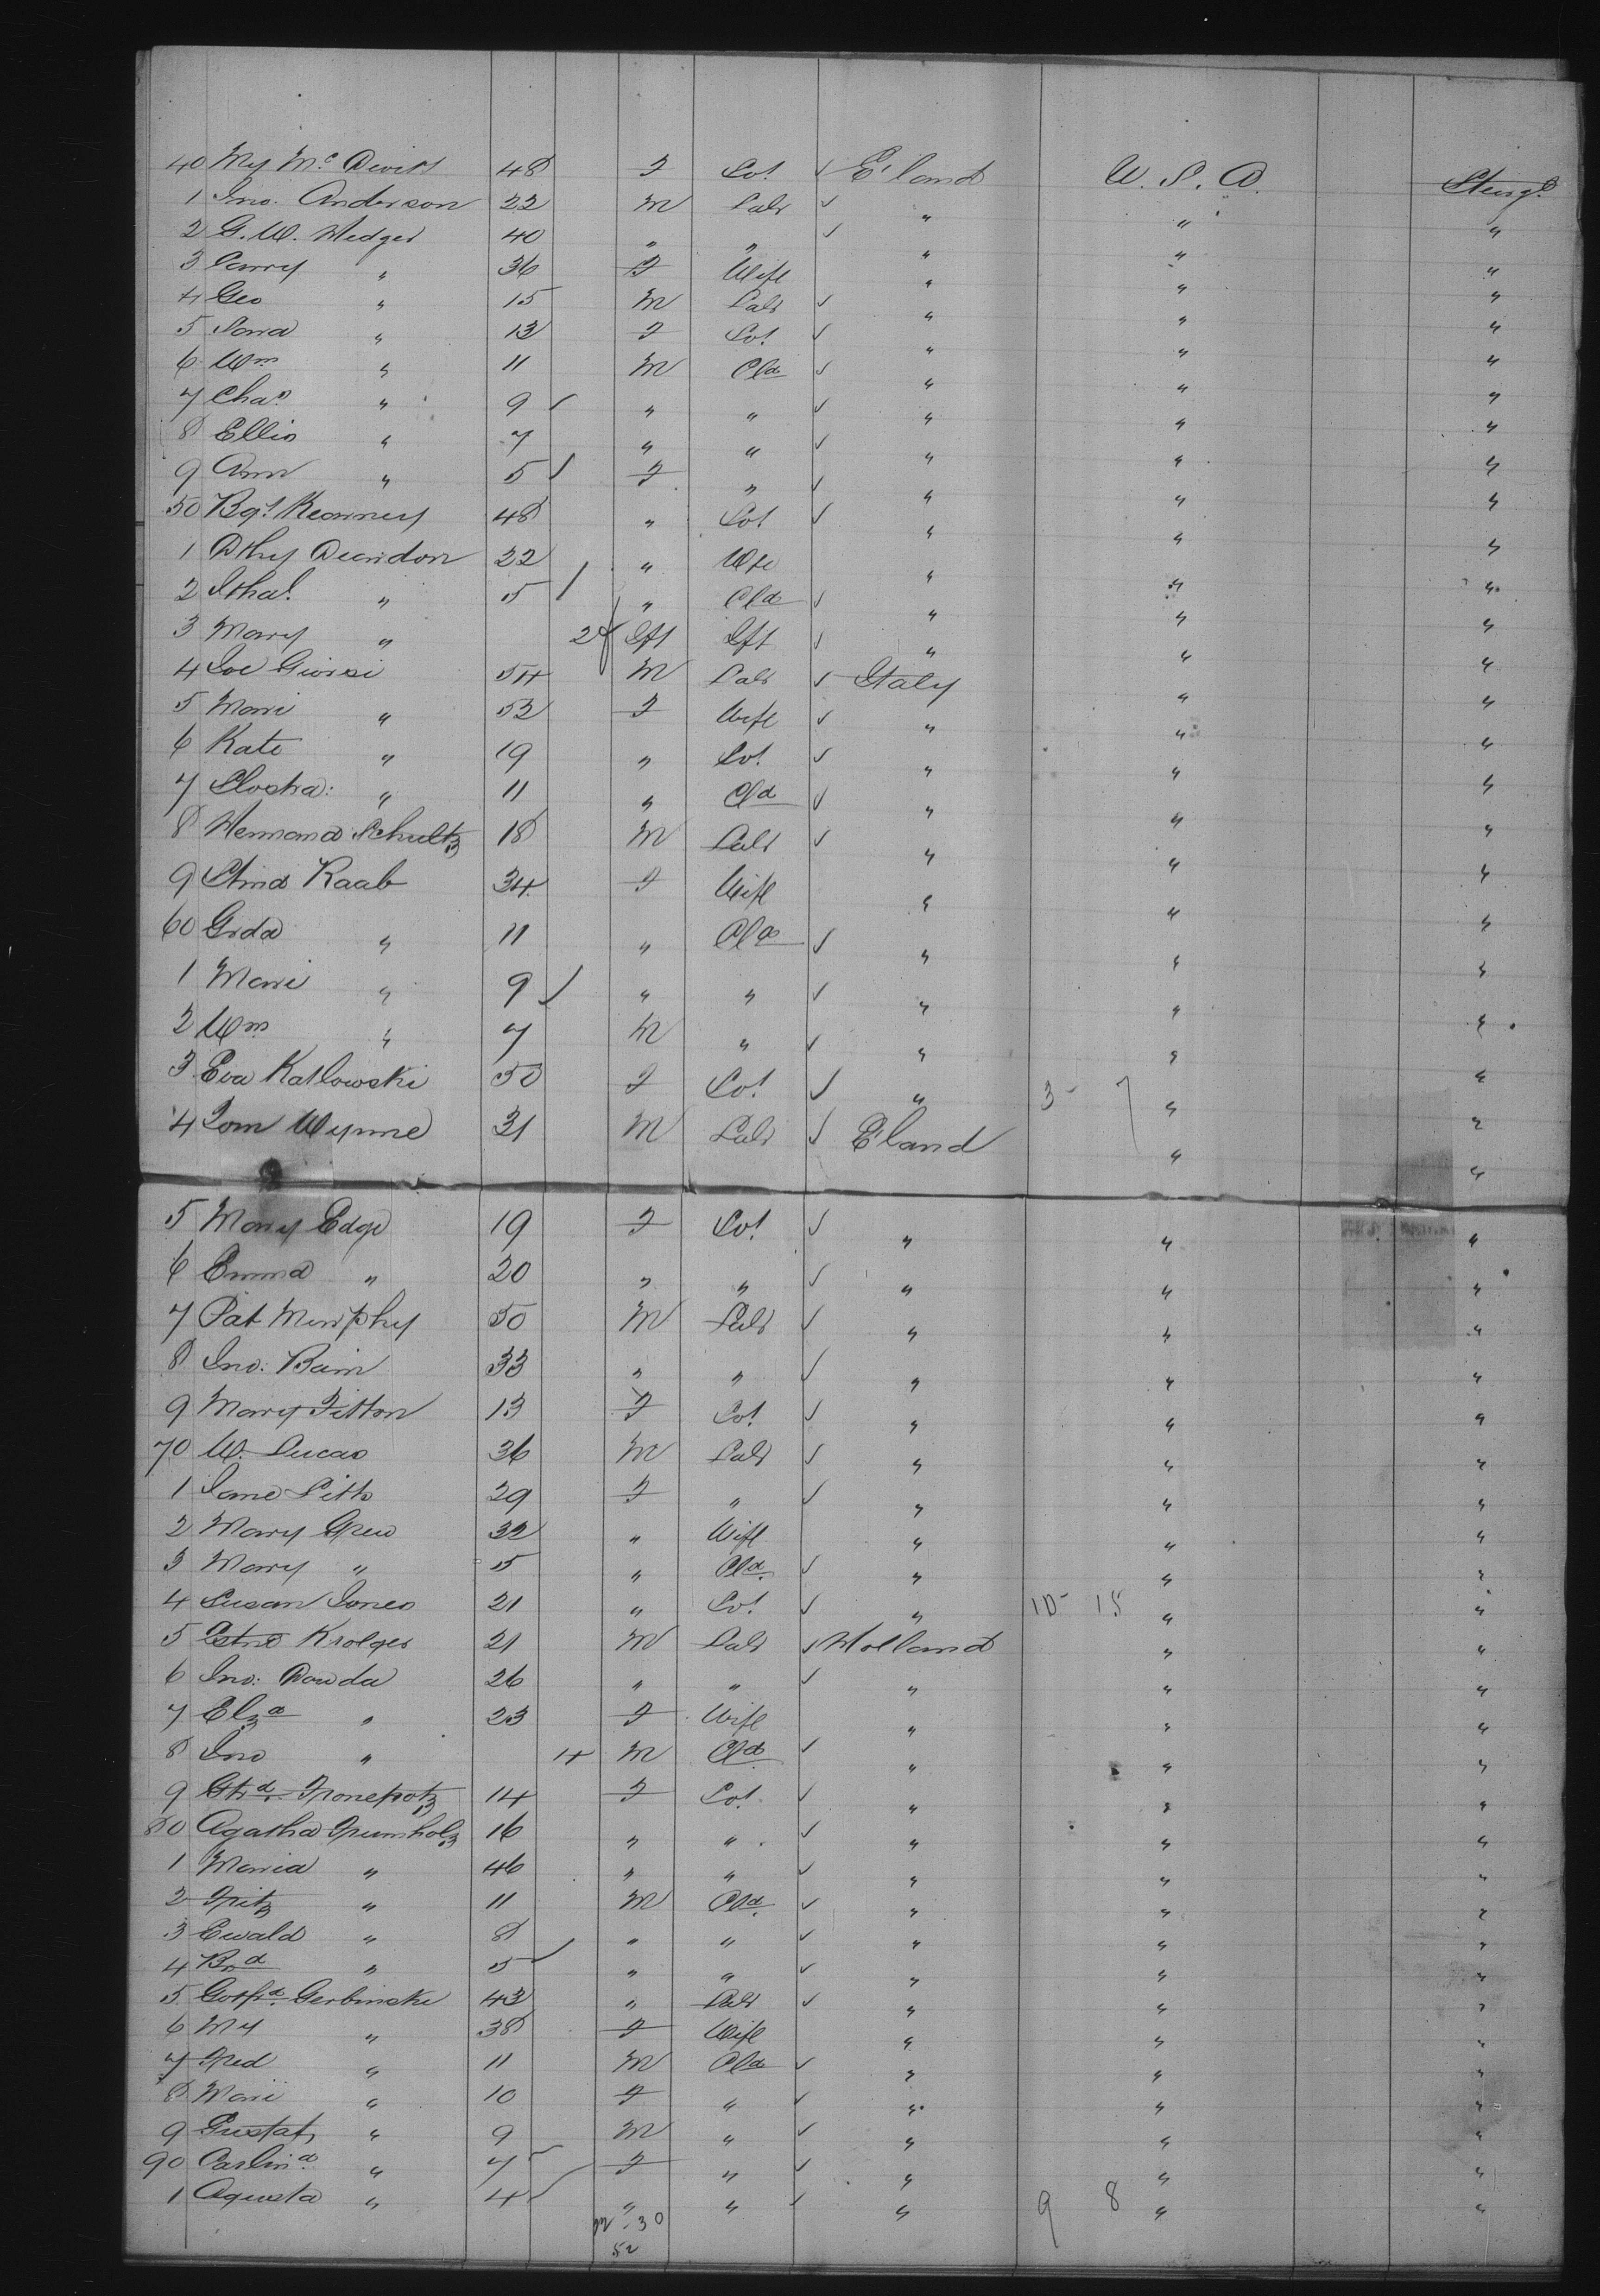 40 My Mc Devitt 48 F Sv! ✓ E'land U.S.A. Steerg!
1 Jno. Anderson 22 M Labr ✓ " " "
2 G. W. Hedges 40 " " ✓ " " "
3 " 36 F Wife " " "
4 Geo " 15 M Labr ✓ " " "
5 " 13 F Sv! ✓ " " "
6 Wm " 11 M Cld ✓ " " "
7 Chas " 9 ✓ " " ✓ " " "
8 Ellis " 7 " " ✓ " " "
9 Ann " 5 ✓ F " ✓ " " "
50 Bgt Kearney 48 " Sv! ✓ " " "
1 22 " Wfe " " "
2 " 5 / " Cld ✓ " " "
3 Mary " 2 Ift Ift ✓ " " "
4 Joe 54 M Labr ✓ Italy " "
5 Marie " 52 F Wife ✓ " " "
6 Kate " 19 " Sv! ✓ " " "
7 " 11 " Cld ✓ " " "
8 Hermand Schultz 18 M Labr ✓ " " "
9 Raab 34 F Wife " " "
60 Grda " 11 " Cld ✓ " " "
1 Marie " 9 ✓ " " ✓ " " "
2 Wm " 7 M " ✓ " " "
3 Eva Katlowski 50 F Sv! ✓ " 3 - 7 " "
4 Tom Wynne 31 M Labr ✓ E'land " "
5 Mary Edge 19 F Sv! ✓ " " "
6 Emma " 20 " " ✓ " " "
7 Pat Murphy 50 M Labr ✓ " " "
8 Jno: Bain 33 " " ✓ " " "
9 Mary Fitton 13 F Sv! ✓ " " "
70 W. Lucas 36 M Labr ✓ " " "
1 Jane Pitts 29 F " ✓ " " "
2 Mary Grew 32 " Wife " " "
3 Mary " 5 " Cld ✓ " " "
4 Susan Jones 21 " Sv! ✓ " 10 - 15 " "
5 Krolges 21 M Labr ✓ Holland " "
6 Jno: Dowda 26 " " ✓ " " "
7 Elza " 23 F Wife " " "
8 Jno " 4 M Cld ✓ " " "
9 Gtrd. 14 F Sv! ✓ " " "
80 Agatha Grumholz 16 " " ✓ " " "
1 Maria " 46 " " ✓ " " "
2 Fritz " 11 M Cld ✓ " " "
3 Ewald " 8 " " ✓ " " "
4 Brd " 5 ✓ " " ✓ " " "
5 Gotfd. Gerbinske 43 " Labr ✓ " " "
6 My " 38 F Wife " " "
7 Fred " 11 M Cld ✓ " " "
8 Marie " 10 F " ✓ " " "
9 Gustaf " 9 M " ✓ " " "
90 Carlina " 7 F " ✓ " " "
1 Agusta " 4 ✓ " " ✓ " 9 8 " "
22 - 30
52